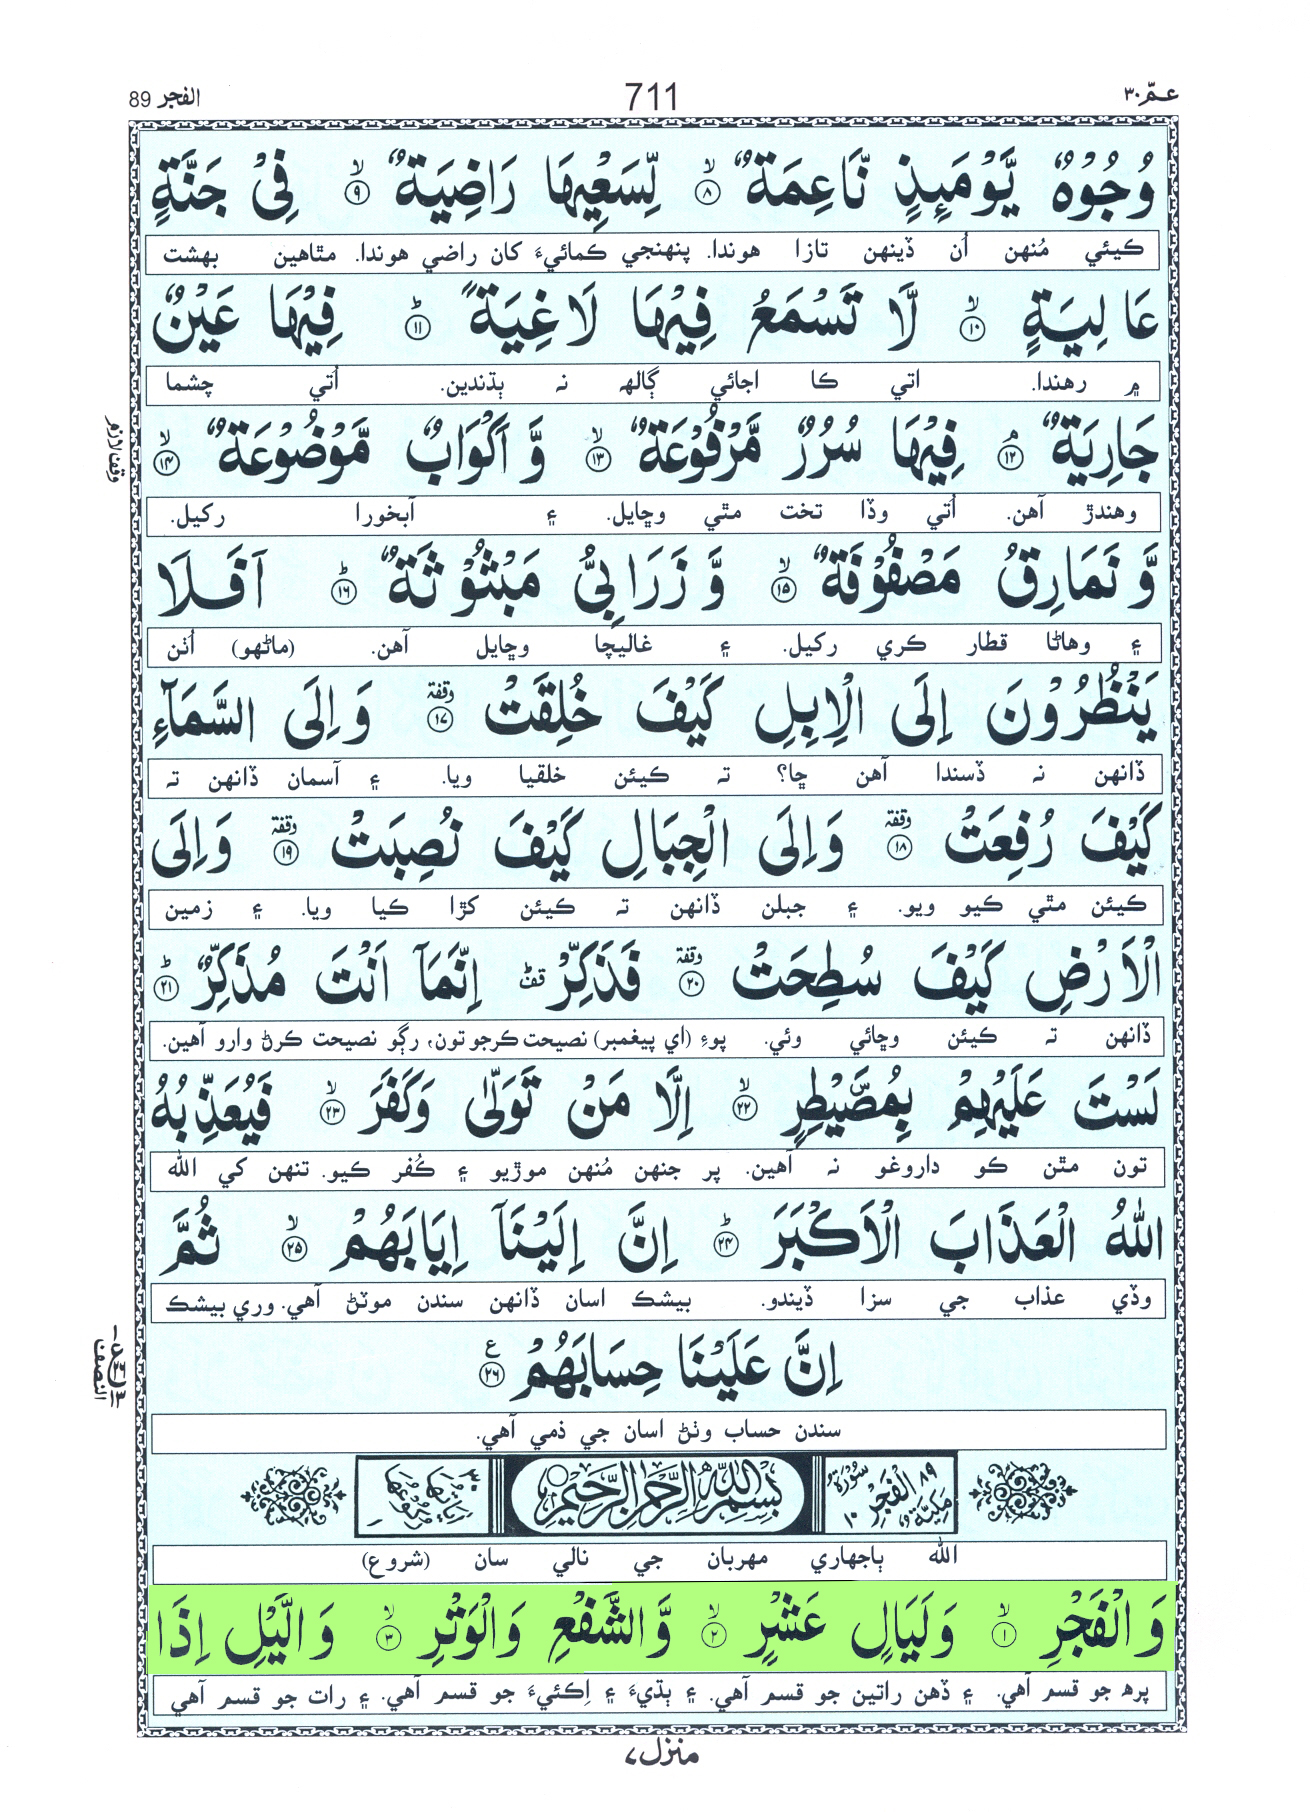 الفجر 89
711
عمّ ٣٠
وُجُوْهٌ يَّوْمَىِٕذٍ نَّاعِمَةٌ ۙ‏﴿۸﴾ لِّسَعْيِهَا رَاضِيَةٌ ۙ‏﴿۹﴾ فِىْ جَنَّةٍ
ڪيئي مُنهن اُن ڏينهن تازا هوندا. پنهنجي ڪمائيءَ کان راضي هوندا. مٿاهين بهشت
عَالِيَةٍ ۙ‏﴿۱۰﴾ لَّا تَسْمَعُ فِيْهَا لَاغِيَةً ؕ‏﴿۱۱﴾ فِيْهَا عَيْنٌ
۾ رهندا. اتي ڪا اجائي ڳالهه نہ ٻڌندين. اُتي چشما
جَارِيَةٌ ۘ‏﴿۱۲﴾ فِيْهَا سُرُرٌ مَّرْفُوْعَةٌ ۙ‏﴿۱۳﴾ وَّ اَكْوَابٌ مَّوْضُوْعَةٌ ۙ‏﴿۱۴﴾
وقف لازم
وهندڙ آهن. اُتي وڏا تخت مٿي وڇايل. ۽ آبخورا رکيل.
وَّ نَمَارِقُ مَصْفُوْفَةٌ ۙ‏﴿۱۵﴾ وَّ زَرَابِىُّ مَبْثُوْثَةٌ ؕ‏﴿۱۶﴾ اَفَلَا
۽ وهاڻا قطار ڪري رکيل. ۽ غاليچا وڇايل آهن. (ماڻهو) اُٺن
يَنْظُرُوْنَ اِلَى الْاِبِلِ كَيْفَ خُلِقَتْ وقفة ‏﴿۱۷﴾ وَ اِلَى السَّمَآءِ
ڏانهن نہ ڏسندا آهن ڇا؟ تہ ڪيئن خلقيا ويا. ۽ آسمان ڏانهن تہ
كَيْفَ رُفِعَتْ وقفة ‏﴿۱۸﴾ وَ اِلَى الْجِبَالِ كَيْفَ نُصِبَتْ وقفة ‏﴿۱۹﴾ وَ اِلَى
ڪيئن مٿي ڪيو ويو. ۽ جبلن ڏانهن تہ ڪيئن کڙا ڪيا ويا. ۽ زمين
الْاَرْضِ كَيْفَ سُطِحَتْ وقفة ‏﴿۲۰﴾ فَذَكِّرْ قف اِنَّمَآ اَنْتَ مُذَكِّرٌ ؕ‏﴿۲۱﴾
ڏانهن تہ ڪيئن وڇائي وئي. پوءِ (اي پيغمبر) نصيحت ڪرجو تون، رڳو نصيحت ڪرڻ وارو آهين.
لَسْتَ عَلَيْهِمْ بِمُصَۜيْطِرٍ ۙ‏﴿۲۲﴾ اِلَّا مَنْ تَوَلّٰى وَكَفَرَ ۙ‏﴿۲۳﴾ فَيُعَذِّبُهُ
تون مٿن ڪو داروغو نہ آهين. پر جنهن مُنهن موڙيو ۽ ڪُفر ڪيو. تنهن کي الله
اللّٰهُ الْعَذَابَ الْاَكْبَرَ ؕ‏﴿۲۴﴾ اِنَّ اِلَيْنَآ اِيَابَهُمْ ۙ‏﴿۲۵﴾ ثُمَّ
وڏي عذاب جي سزا ڏيندو. بيشڪ اسان ڏانهن سندن موٽڻ آهي. وري بيشڪ
اِنَّ عَلَيْنَا حِسَابَهُمْ ع ‏﴿۲۶﴾
النصف
سندن حساب وٺڻ اسان جي ذمي آهي.
۸۹ سُوْرَةُ الْفَجْرِ مَكِّيَّةٌ ۱۰
بِسْمِ اللّٰهِ الرَّحْمٰنِ الرَّحِيْمِ
اٰيَاتُهَا ۳۰ رُكُوْعُهَا ۱
الله ٻاجهاري مهربان جي نالي سان (شروع)
وَ الْفَجْرِ ۙ‏﴿۱﴾ وَلَيَالٍ عَشْرٍ ۙ‏﴿۲﴾ وَّالشَّفْعِ وَالْوَتْرِ ۙ‏﴿۳﴾ وَ الَّيْلِ اِذَا
پرھ جو قسم آهي. ۽ ڏهن راتين جو قسم آهي. ۽ ٻڌيءَ ۽ اِڪيءَ جو قسم آهي. ۽ رات جو قسم آهي
منزل ۷